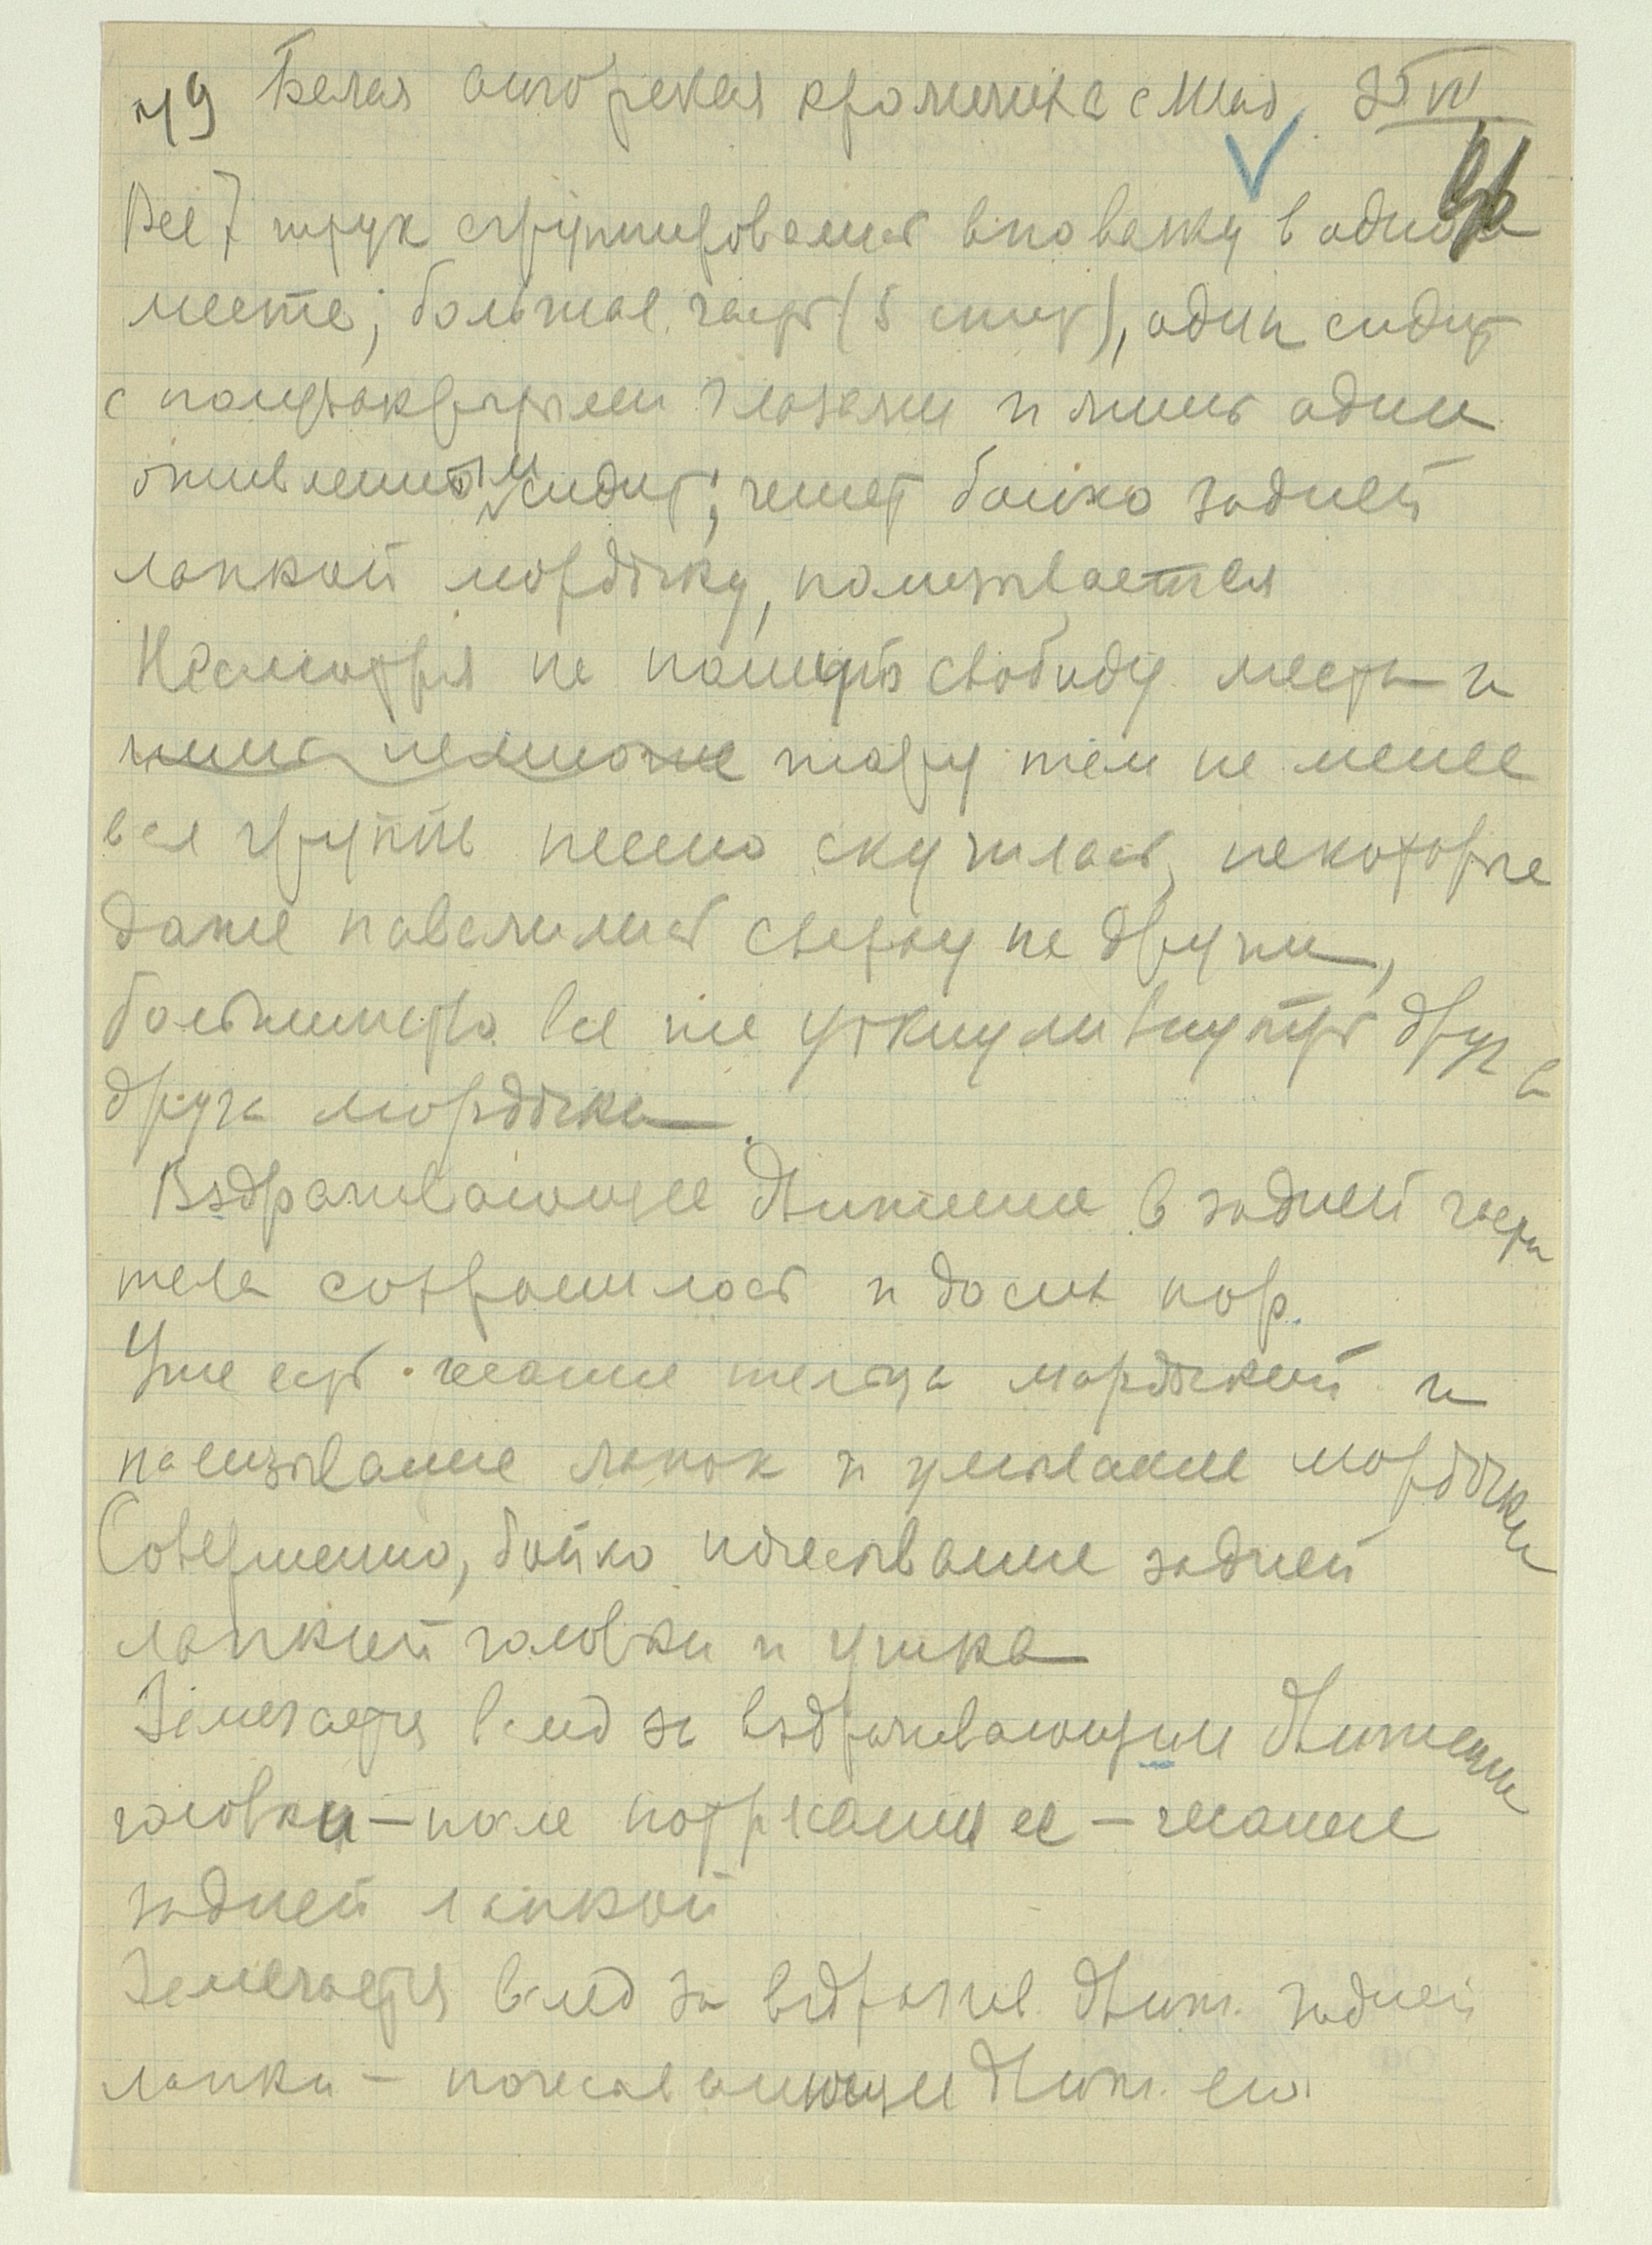 м9 Белая ангорская крольчиха с Мшад 25 VII
Все 7 штук сгруппировались вповалку в одном
месте; большая часть (5 спит), один сидит
с полузакрытыми глазами и лишь один
оживленный сидит; чешет бойко задней
лапкой мордочку, полизывается
Несмотря на полную свободу места и
жару тем не менее
вся группа тесно скучилась, некоторые
даже навалились сверху на других,
большинство все же уткнули внутрь друг в
друга мордочки.
Вздрагивающее движение в задней части
тела сохранилось и до сих пор.
Уже есть чесание тельца мордочкой и
полизывание лапок и умывание мордочки
Совершенно, бойко почесывание задней
лапкой головки и ушка
Замечается вслед за вздрагивающим движением
головки — после потряхания ее — чесание
задней лапкой
Замечается вслед за вздрагив. движ. задней
лапки — почесывающие движ. ею.